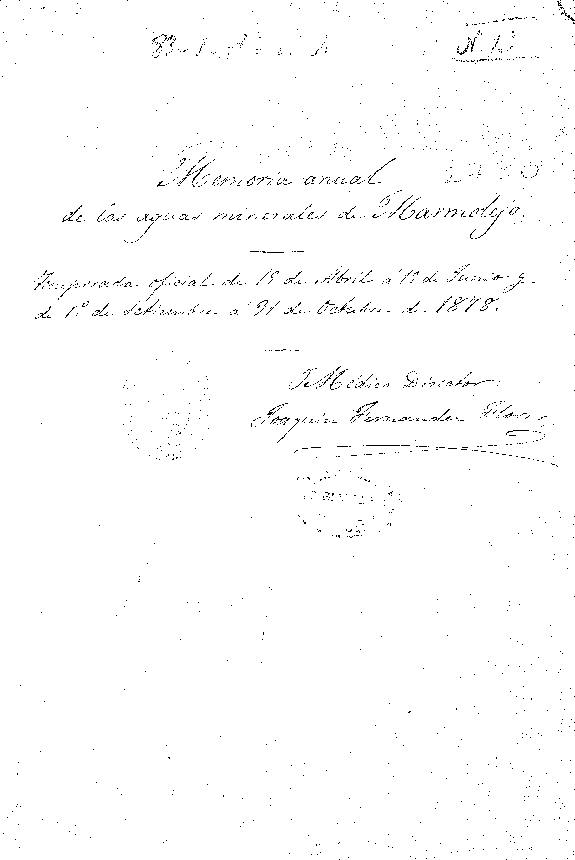 Memoria anual
de las aguas minerales de Marmolejo.
Temporada oficial de 15 de Abril á 15 de Junio y
de 1º de Setiembre á 31 de Octubre de 1878.
El Médico Director
Joaquin Fernandez Flores